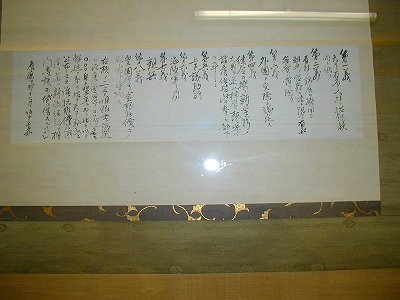 第一義
天下有名ノ人材を招致シ
顧問ニ供フ
第二義
有材ノ諸侯ヲ撰用シ
朝廷ノ官爵ヲ賜ヒ現今
有名無実ノ官ヲ除ク
第三義
外国ノ交際ヲ議定ス
第四義
律令ヲ撰シ新ニ無窮ノ
大典ヲ定ム律令既ニ定レハ
諸侯伯皆此ヲ奉シテ部下
ヲ率ユ
第五義
上下議政所
第六義
海陸軍局
第七義
親兵
第八義
皇国今日ノ金銀物価ヲ
外国ト平均ス
右預メ二三ノ明眼士ト議定
シ諸侯会盟ノ日ヲ待ツテ云云
○○○自ラ盟主ト為リ此ヲ以テ
朝廷ニ奉リ始テ天下万民ニ
公布云云強抗非礼
公議ニ違フ者ハ断然征討ス
権門貴族モ貸借スルコトナシ
慶応丁卯十一月 坂本直柔